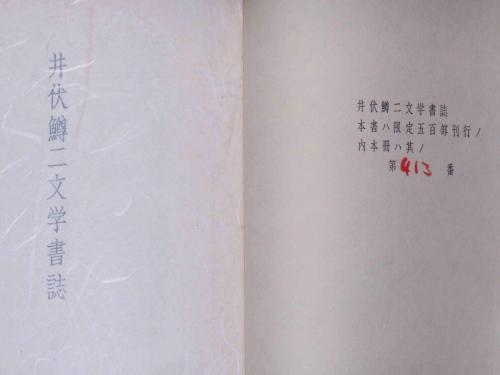 井伏鱒二文学書誌
井伏鱒二文学書誌
本書ハ限定五百部刊行ノ
内本冊ハ其ノ
第413番